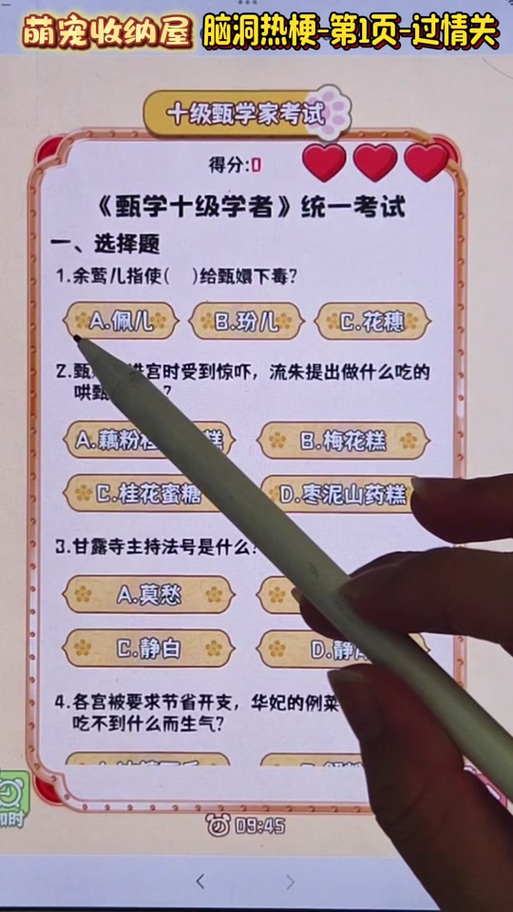 萌宠收纳屋 脑洞热梗-第1页-过情关
十级甄学家考试
得分:0
《甄学十级学者》统一考试
一、选择题
1.余莺儿指使( )给甄嬛下毒?
A.佩儿 B.玢儿 C.花穗
2.甄 进宫时受到惊吓，流朱提出做什么吃的
哄甄 ?
A.藕粉桂 糕 B.梅花糕
C.桂花蜜糖 D.枣泥山药糕
3.甘露寺主持法号是什么?
A.莫愁
C.静白 D.静
4.各宫被要求节省开支，华妃的例菜
吃不到什么而生气?
加时
09:45